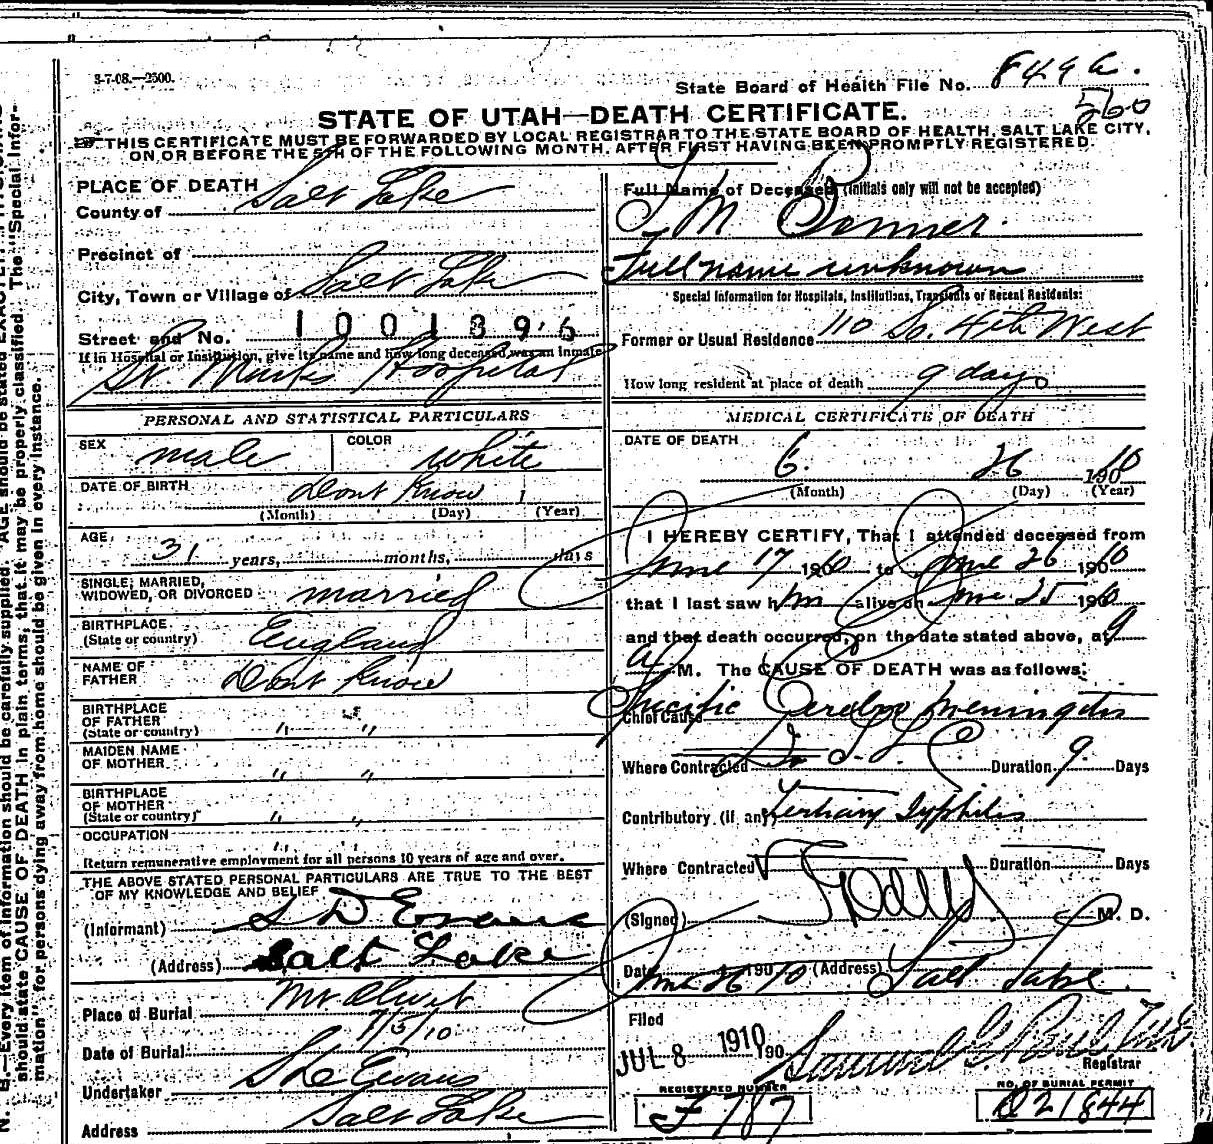 3-7-08.—2500.
State Board of Health File No. 849 a.
560
STATE OF UTAH—DEATH CERTIFICATE.
THIS CERTIFICATE MUST BE FORWARDED BY LOCAL REGISTRAR TO THE STATE BOARD OF HEALTH, SALT LAKE CITY,
ON OR BEFORE THE 5TH OF THE FOLLOWING MONTH, AFTER FIRST HAVING BEEN PROMPTLY REGISTERED.
PLACE OF DEATH
County of Salt Lake
Precinct of
City, Town or Village of Salt Lake
Street and No. 1001396
If in Hospital or Institution, give its name and how long deceased was an inmate
St. Marks Hospital
Full Name of Deceased (Initials only will not be accepted)
T M Bonner.
Full name unknown
Special Information for Hospitals, Institutions, Transients or Recent Residents:
Former or Usual Residence 110 So. 4th West
How long resident at place of death 9 days
PERSONAL AND STATISTICAL PARTICULARS
SEX male COLOR white
DATE OF BIRTH Dont Know
(Month) (Day) (Year)
AGE, 31 years, months, days
SINGLE, MARRIED,
WIDOWED, OR DIVORCED married
BIRTHPLACE
(State or country) England
NAME OF
FATHER Dont Know
BIRTHPLACE
OF FATHER
(State or country) " "
MAIDEN NAME
OF MOTHER " "
BIRTHPLACE
OF MOTHER
(State or country) " "
OCCUPATION "
Return remunerative employment for all persons 10 years of age and over.
THE ABOVE STATED PERSONAL PARTICULARS ARE TRUE TO THE BEST
OF MY KNOWLEDGE AND BELIEF
(Informant) S D Evans
(Address) Salt Lake
Place of Burial Mt Olivet
Date of Burial 7/5/10
Undertaker S D Evans
Address Salt Lake
MEDICAL CERTIFICATE OF DEATH
DATE OF DEATH
6. 26 1910
(Month) (Day) (Year)
I HEREBY CERTIFY, That I attended deceased from
June 17 1910 to June 26 1910
that I last saw him alive on June 25 1910
and that death occurred, on the date stated above, at 9
A M. The CAUSE OF DEATH was as follows:
Chief Cause Specific Cerebro meningitis
Where Contracted S. L. C. Duration 9 Days
Contributory (if any) Tertiary Syphilis
Where Contracted Duration Days
(Signed) M. D.
Date June 26 1910 (Address) Salt Lake.
Filed
JUL 8 1910 190
Registrar
REGISTERED NUMBER
F 787
NO. OF BURIAL PERMIT
D21844
N. B.—Every item of information should be carefully supplied. AGE should be stated EXACTLY.
should state CAUSE OF DEATH in plain terms, that it may be properly classified. The "Special Infor-
mation" for persons dying away from home should be given in every instance.